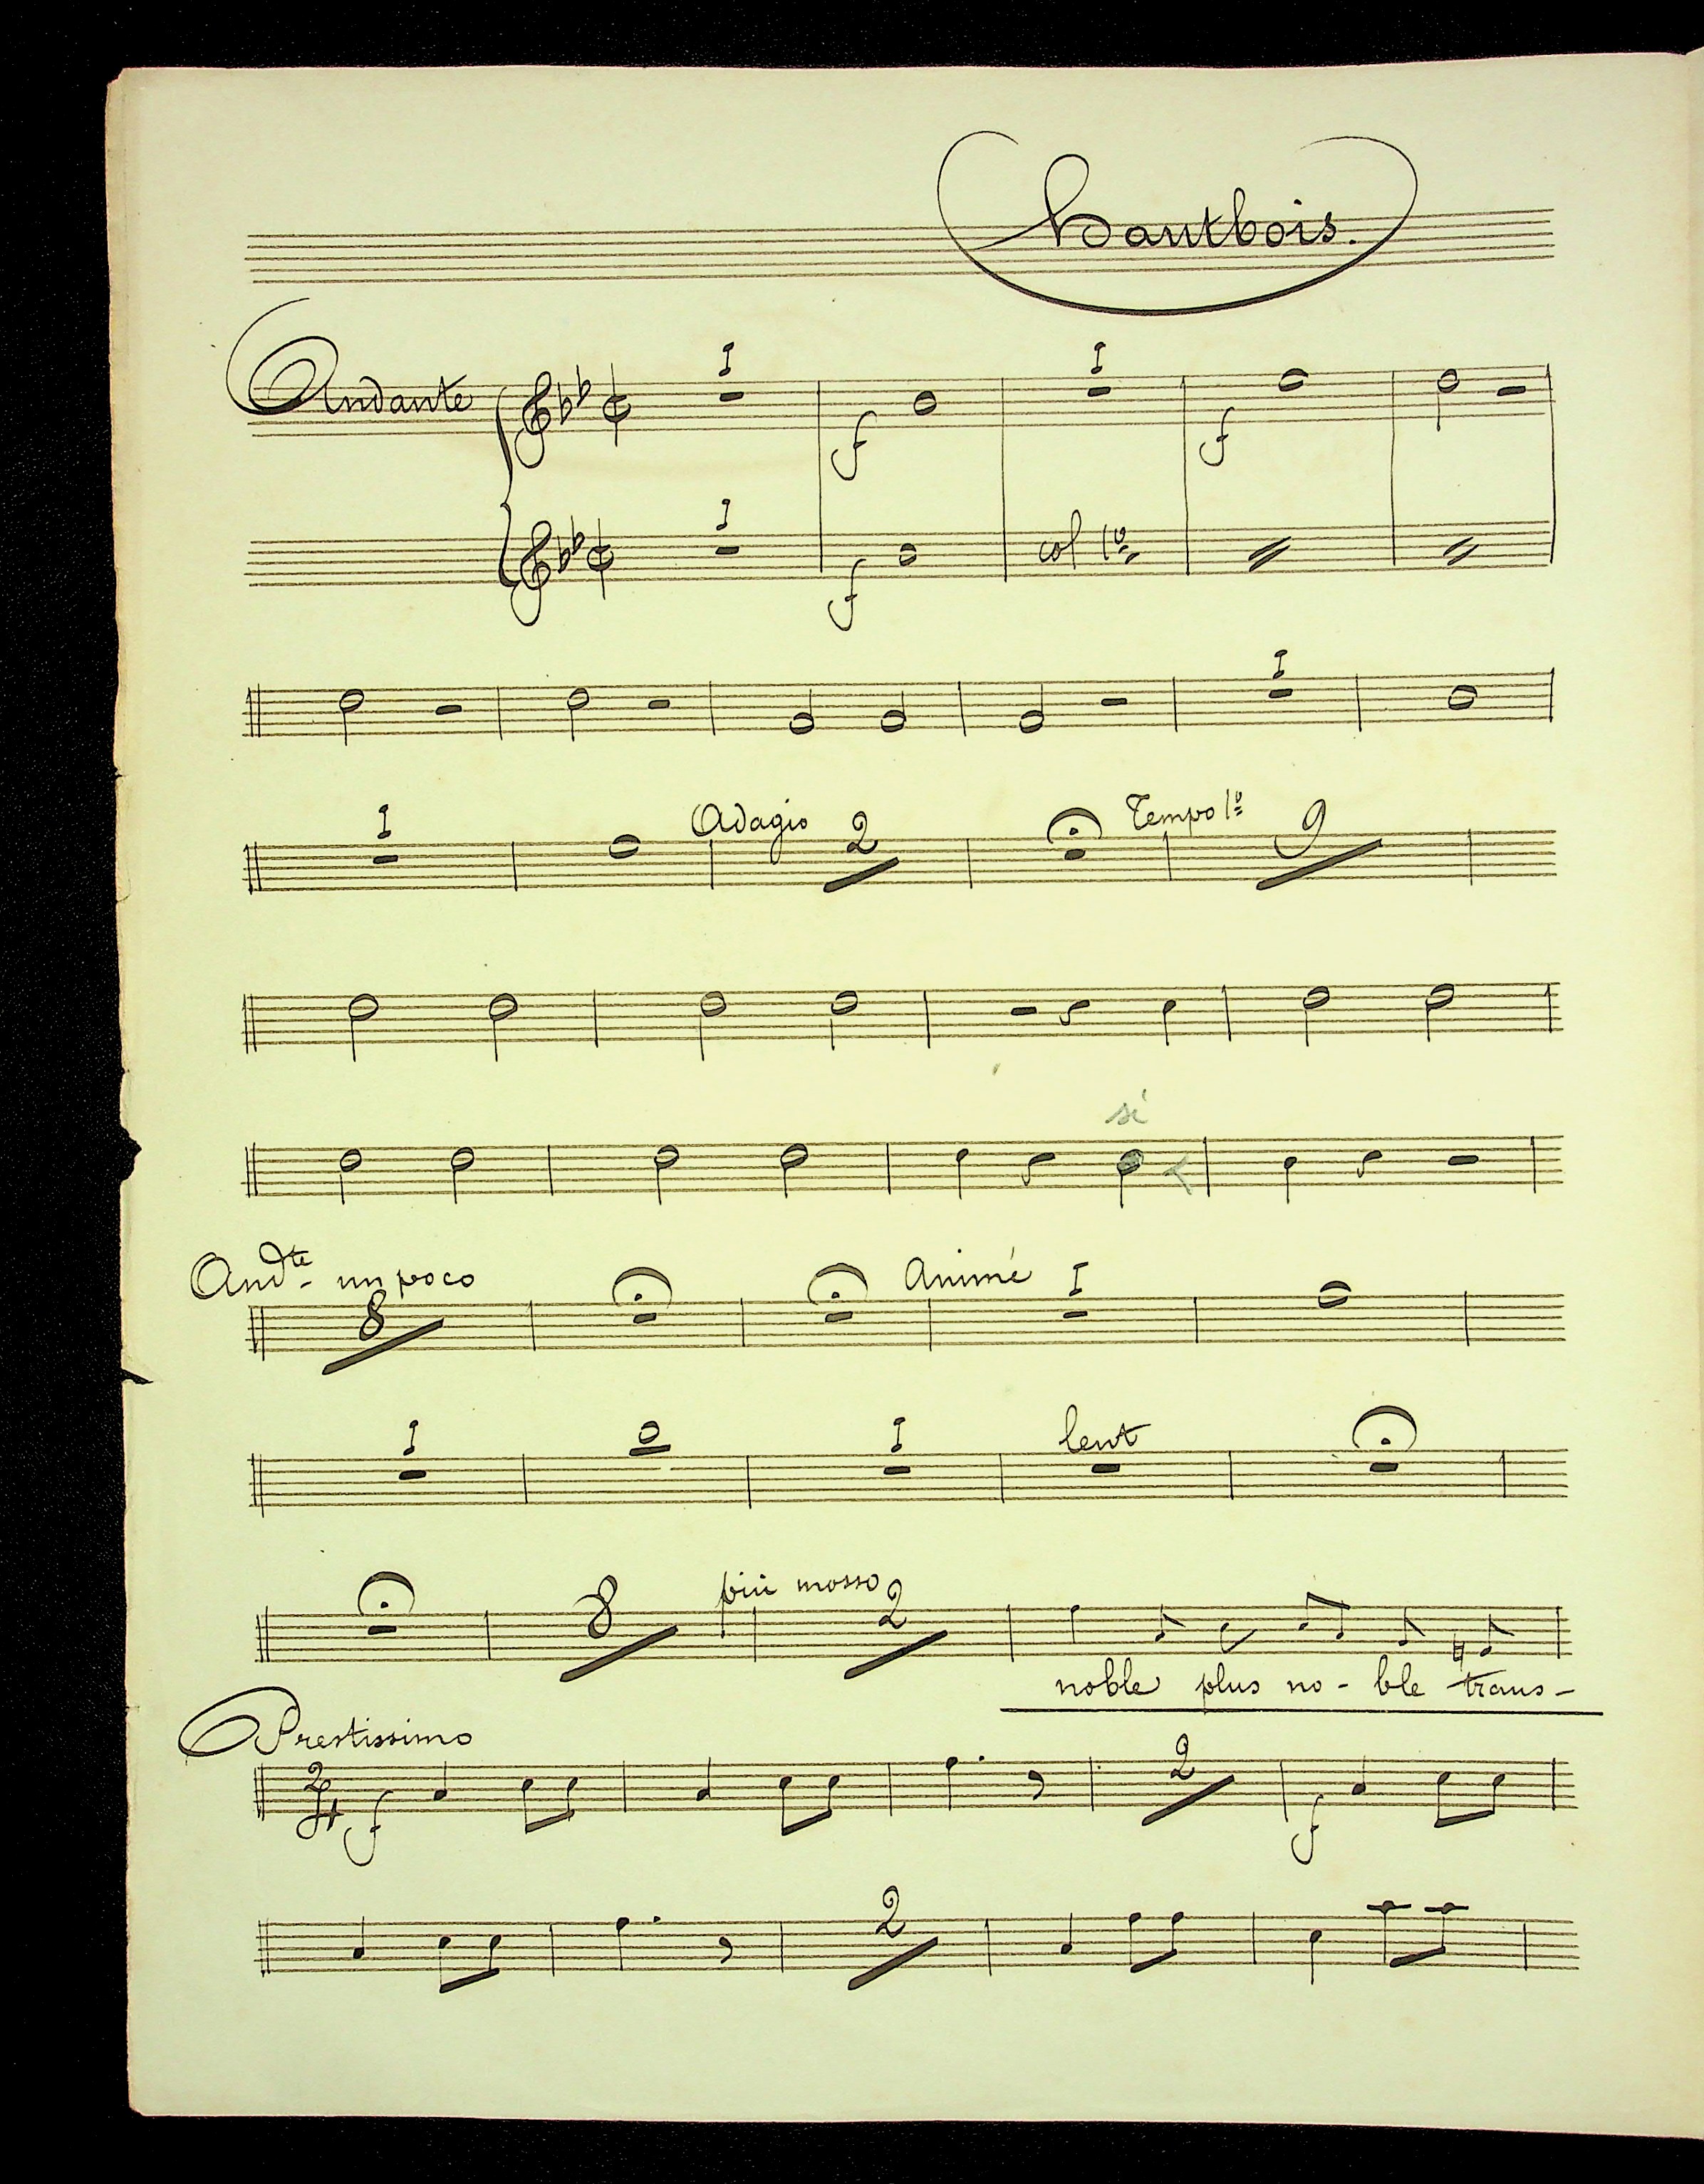 hautbois.
Andante I f I f
I f col 1º
I
I Adagio 2 Tempo 1º 9
si
Andte un poco 8 animé I
I I lent
8 più mosso 2
noble plus no - ble trans -
Prestissimo
2 4 f 2 f
2